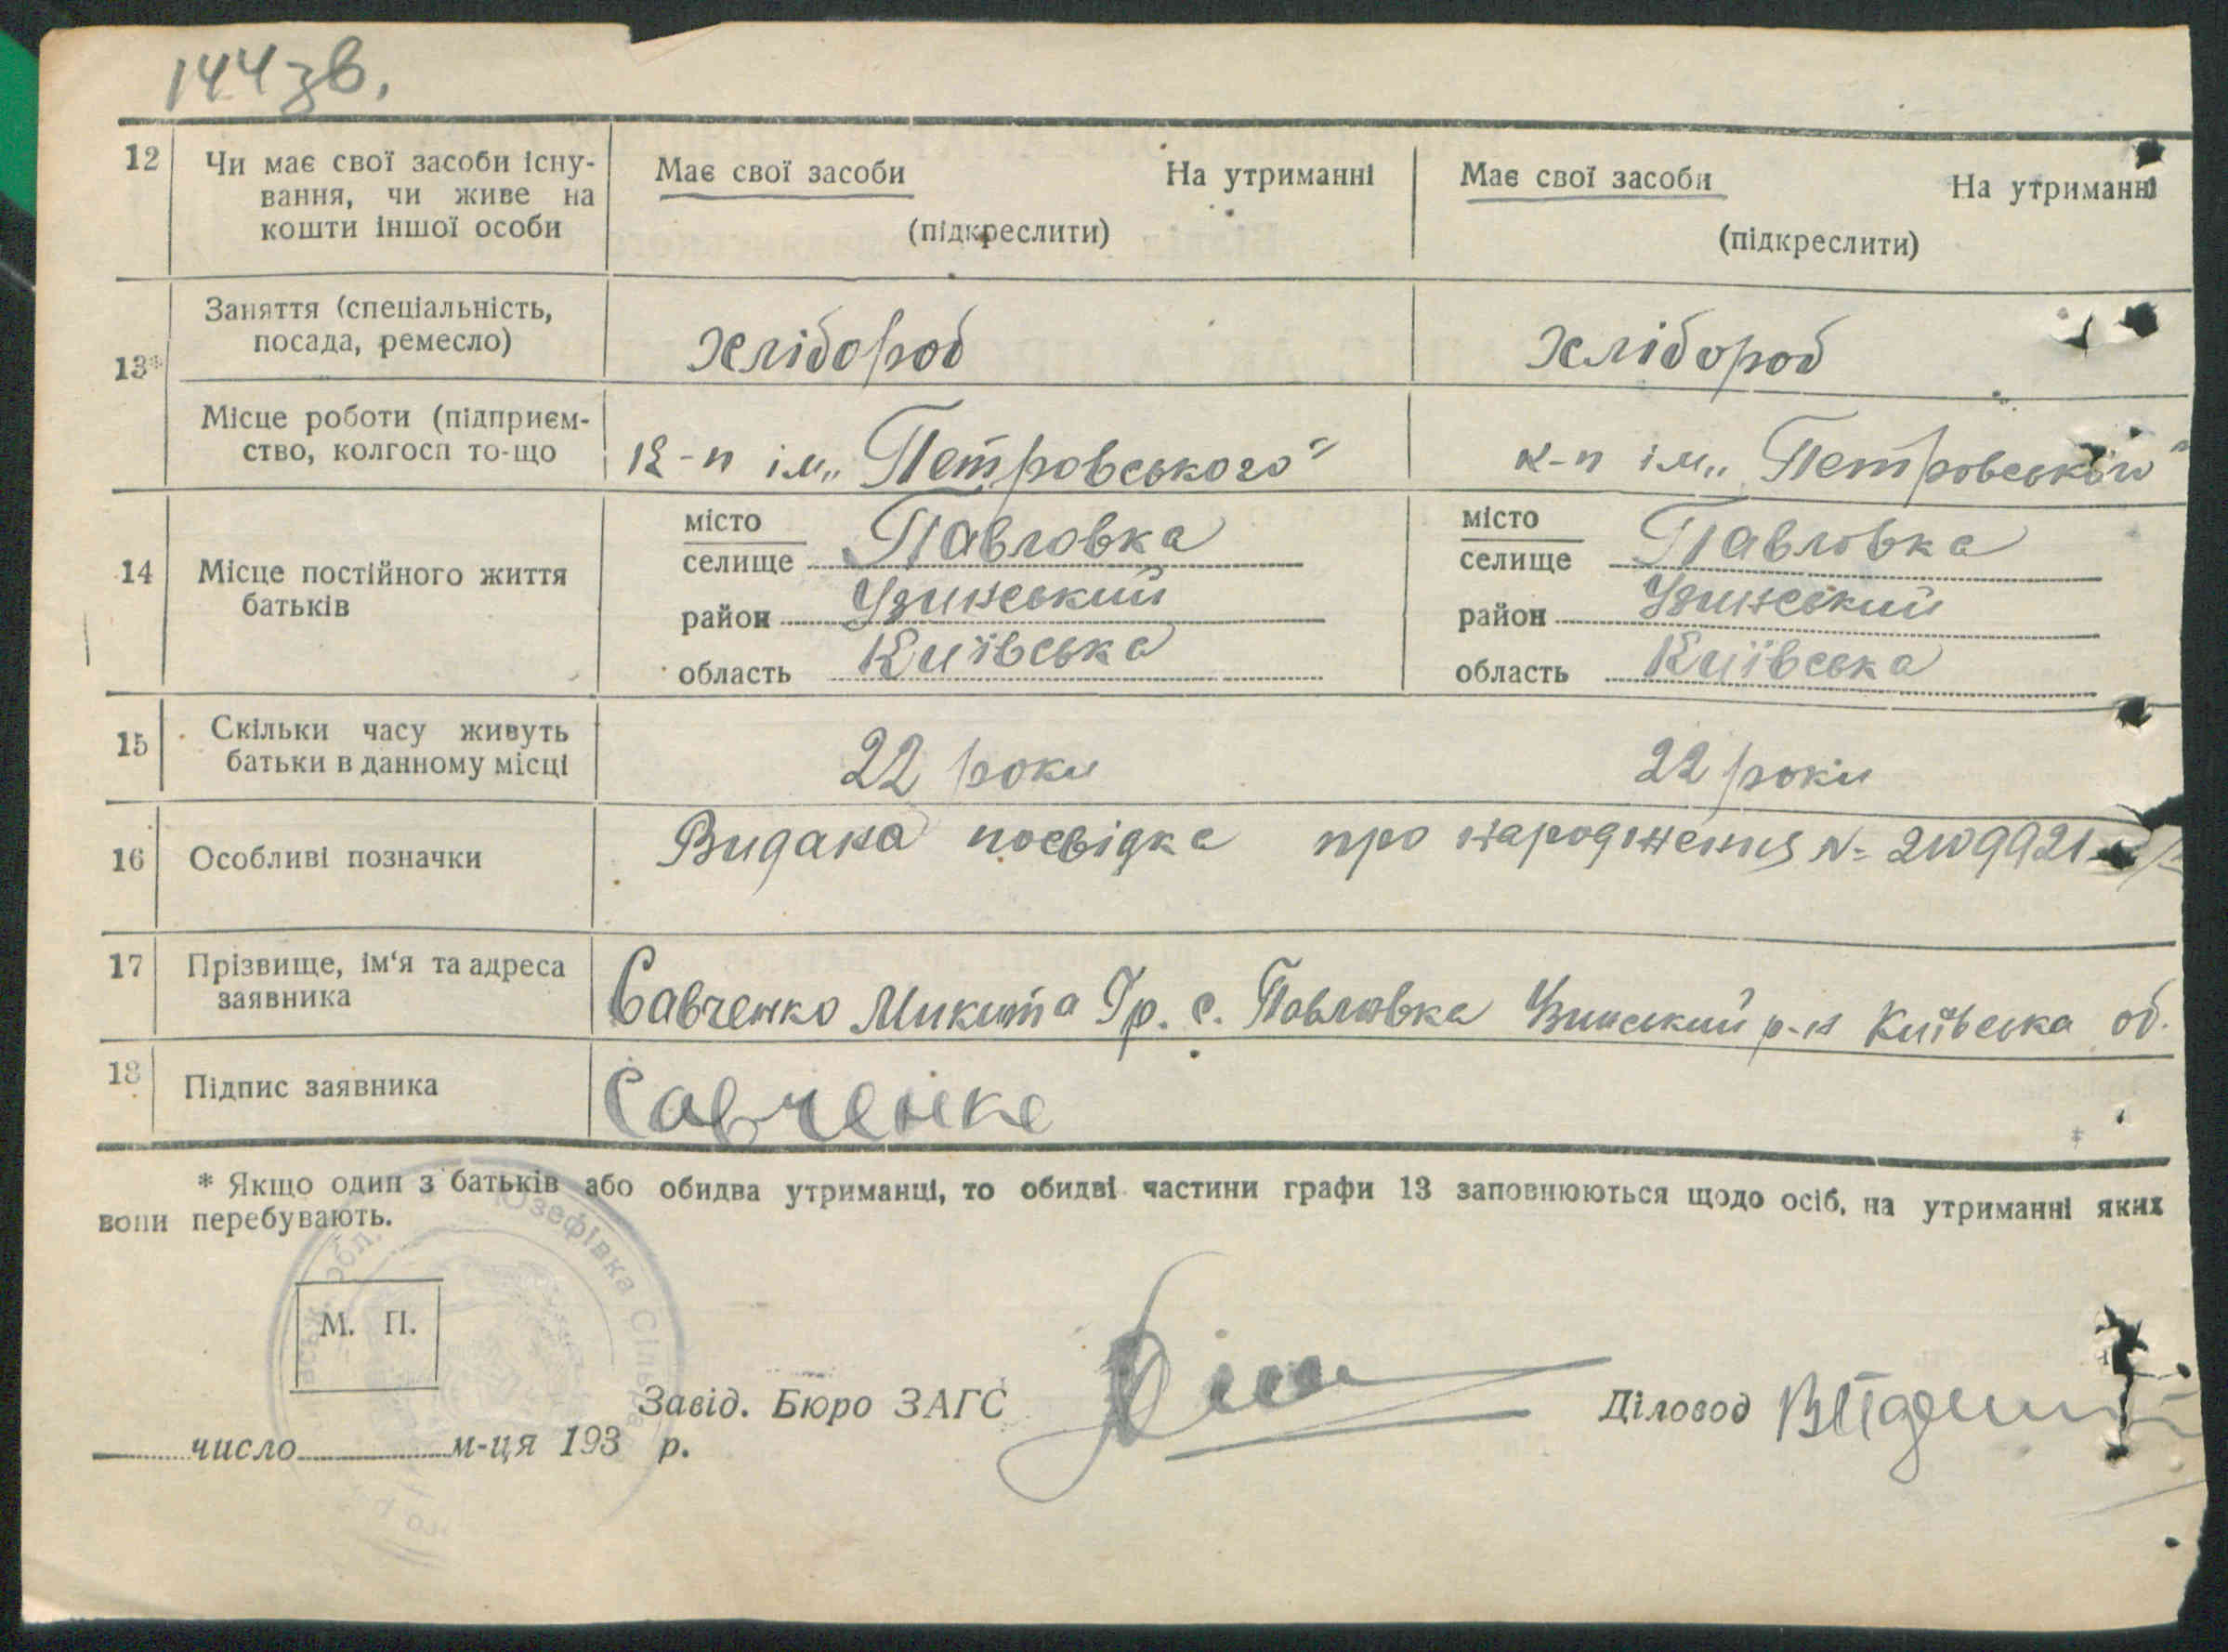 144зв.
12 Чи має свої засоби існу- Має свої засоби На утриманні Має свої засоби На утриманні
вання, чи живе на
кошти іншої особи (підкреслити) (підкреслити)
Заняття (спеціальність,
посада, ремесло) хлібороб хлібороб
13*
Місце роботи (підприєм-
ство, колгосп то-що К-п ім. „Петровського" к-п ім. „Петровського"
місто місто
селище Павловка селище Павловка
14 Місце постійного життя
батьків
район Узинський район Узинський
область Київська область Київська
15 Скільки часу живуть
батьки в данному місці 22 роки 22 роки
16 Особливі позначки Видана посвідка про народження №
17 Прізвище, ім'я та адреса
заявника Савченко Микита Гр. с. Павловка Узинський р-н Київська об.
18 Підпис заявника Савченко
* Якщо один з батьків або обидва утриманці, то обидві частини графи 13 заповнюються щодо осіб, на утриманні яких
вони перебувають.
обл. Юзефівка Сіль
М. П.
Завід. Бюро ЗАГС Діловод
число м-ця 193 р.